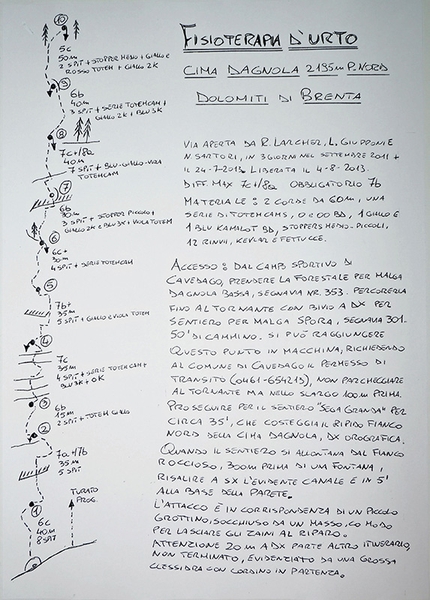 FISIOTERAPIA D'URTO
CIMA DAGNOLA 2195m P. NORD
DOLOMITI DI BRENTA
VIA APERTA DA R. LARCHER, L. GIUPPONI E
N. SARTORI, IN 3 GIORNI NEL SETTEMBRE 2011 +
IL 24-7-2013. LIBERATA IL 4-8-2013.
DIFF. MAX 7c+/8a OBBLIGATORIO 7b
MATERIALE: 2 CORDE DA 60M, UNA
SERIE DI TOTEMCAMS, 0 E 00 BD, 1 GIALLO E
1 BLU KAMALOT BD, STOPPERS MEDIO-PICCOLI,
12 RINVII, KEVLAR E FETTUCCE.
ACCESSO: DAL CAMPO SPORTIVO DI
CAVEDAGO, PRENDERE LA FORESTALE PER MALGA
DAGNOLA BASSA, SEGNAVIA NR. 353. PERCORERLA
FINO AL TORNANTE CON BIVIO A DX PER
SENTIERO PER MALGA SPORA, SEGNAVIA 301.
50' DI CAMMINO. SI PUÒ RAGGIUNGERE
QUESTO PUNTO IN MACCHINA, RICHIEDENDO
AL COMUNE DI CAVEDAGO IL PERMESSO DI
TRANSITO (0461-654213), NON PARCHEGGIARE
AL TORNANTE MA NELLO SLARGO 100M PRIMA.
PROSEGUIRE PER IL SENTIERO "SEGA GRANDA" PER
CIRCA 35', CHE COSTEGGIA IL RIPIDO FIANCO
NORD DELLA CIMA DAGNOLA, DX OROGRAFICA.
QUANDO IL SENTIERO SI ALLONTANA DAL FIANCO
ROCCIOSO, 300M PRIMA DI UNA FONTANA,
RISALIRE A SX L'EVIDENTE CANALE E IN 5'
ALLA BASE DELLA PARETE.
L'ATTACCO È IN CORRISPONDENZA DI UN PICCOLO
GROTTINO, SOCCHIUSO DA UN MASSO, COMODO
PER LASCIARE GLI ZAINI AL RIPARO.
ATTENZIONE 20 M A DX PARTE ALTRO ITINERARIO,
NON TERMINATO, EVIDENZIATO DA UNA GROSSA
CLESSIDRA CON CORDINO IN PARTENZA.
10
5c
50m
2 SPIT + STOPPER MEDIO + GIALLO E
ROSSO TOTEM + GIALLO 2K
9
6b
40m
3 SPIT + SERIE TOTEMCAM +
GIALLO 2K + BLU 3K
8
7c+/8a
40m
7 SPIT + BLU-GIALLO-VIOLA
TOTEMCAM
7
6b
30m
3 SPIT + STOPPER PICCOLI,
GIALLO 2K E BLU 3K + VIOLA TOTEM
6
6c+
30m
4 SPIT + SERIE TOTEMCAM
5
7b+
35m
5 SPIT + GIALLO E VIOLA TOTEM
4
7c
40m
4 SPIT + SERIE TOTEMCAM +
BLU 3K + 0K
3
6b
15m
2 SPIT + TOTEM GIALLO
2
7a+/7b
35m
5 SPIT
1
6c
40m
8 SPIT
TURATO
PROG.